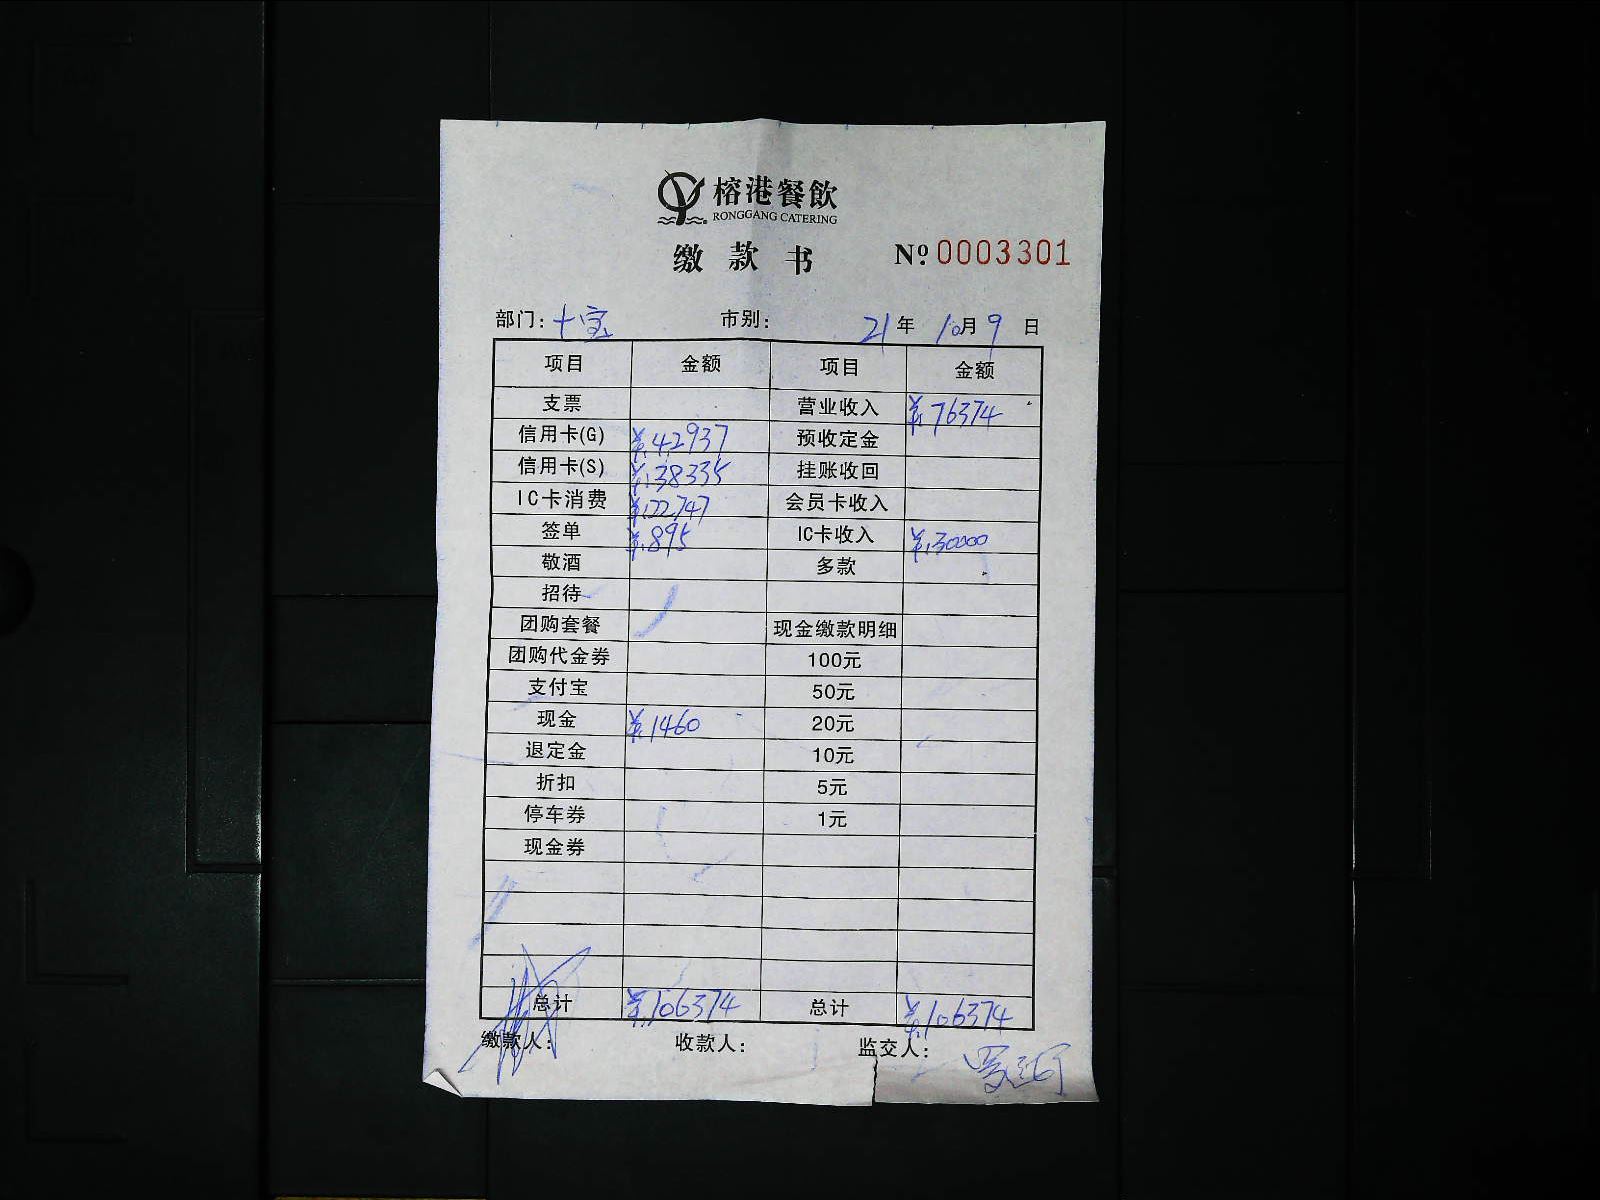 榕港餐飲
RONGGANG CATERING
缴款书 № 0003301
部门: 十宝 市别: 21年 10月 9日
项目 金额 项目 金额
支票 营业收入 ¥:76374
信用卡(G) ¥:42937 预收定金
信用卡(S) ¥:38335 挂账收回
IC卡消费 ¥:22747 会员卡收入
签单 ¥:895 IC卡收入 ¥:30000
敬酒 多款
招待
团购套餐 现金缴款明细
团购代金券 100元
支付宝 50元
现金 ¥:1460 20元
退定金 10元
折扣 5元
停车券 1元
现金券
总计 ¥:106374 总计 ¥:106374
缴款人: 收款人: 监交人: